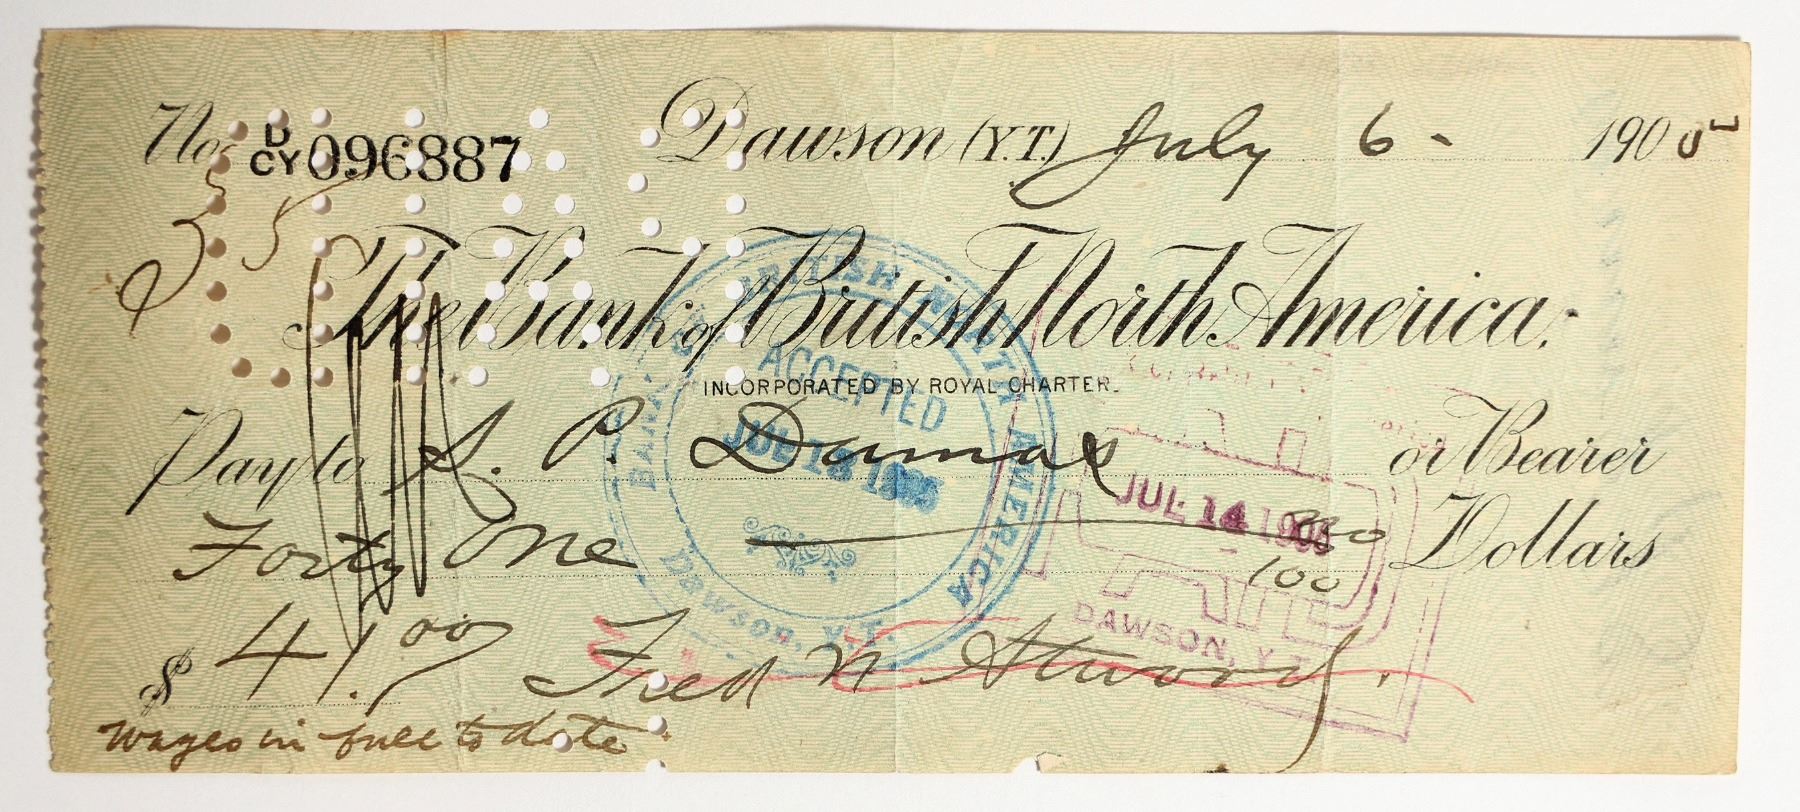 No. D CY 096887 Dawson (Y.T.) July 6 - 1905
The Bank of British North America.
INCORPORATED BY ROYAL CHARTER.
Pay to S. P. Dumas or Bearer
Forty One 00/100 Dollars
$ 41.00 Fred N Atwood.
Wages in full to date
BANK OF BRITISH NORTH AMERICA
ACCEPTED
JUL 1905
DAWSON, Y.T.
JUL 14 1905
PAID
DAWSON, Y.T.